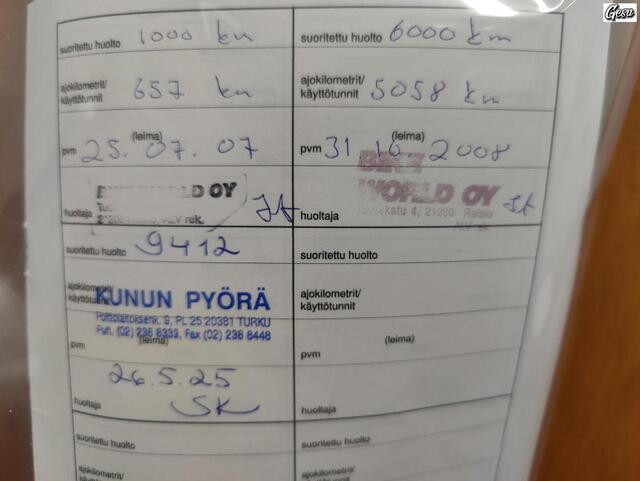 Gesu
suoritettu huolto 1000 km
ajokilometrit/
käyttötunnit 657 km
(leima)
pvm 25.07.07
BIKE WORLD OY
21200 ALV rek.
huoltaja
suoritettu huolto 6000 km
ajokilometrit/
käyttötunnit 5058 km
(leima)
pvm 31 10 2008
BIKE
WORLD OY
katu 4, 21200 Raisio
ALV rek.
huoltaja
suoritettu huolto 9412
ajokilometrit/
käyttötunnit
KUNUN PYÖRÄ
Polttolaitoksenk. 9, PL 25 20381 TURKU
Puh. (02) 238 6333, Fax (02) 238 8448
(leima)
pvm
26.5.25
huoltaja SK
suoritettu huolto
ajokilometrit/
käyttötunnit
(leima)
pvm
huoltaja
suoritettu huolto
ajokilometrit/
suoritettu huolto
ajokilometrit/